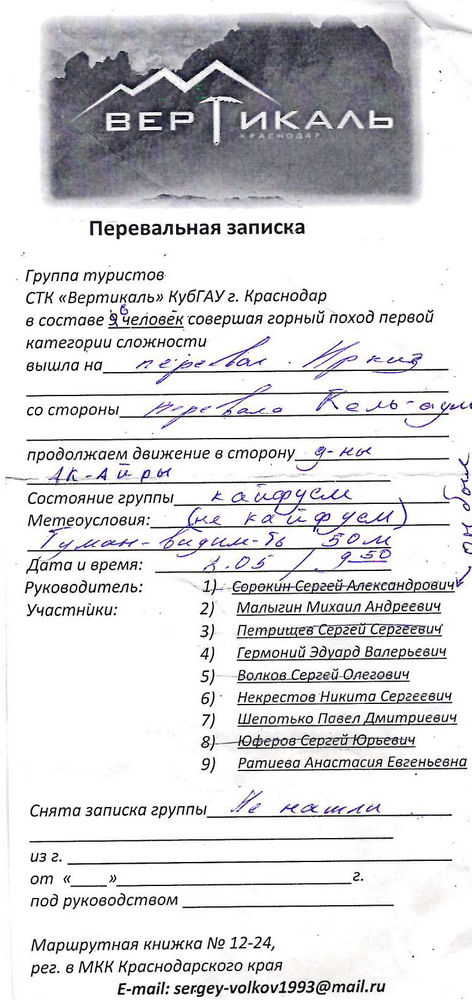 ВЕРТИКАЛЬ
КРАСНОДАР
Перевальная записка
Группа туристов
СТК «Вертикаль» КубГАУ г. Краснодар
в составе 8 человек совершая горный поход первой
категории сложности
вышла на перевал Иркиз
со стороны перевала Кель-ауль
продолжаем движение в сторону д-ны
АК-Айры
Состояние группы кайфуем
Метеоусловия: (не кайфуем)
Туман-видим-ть 50м
Дата и время: 2.05 / 9 50
Руководитель: 1) Сорокин Сергей Александрович
он был
Участники: 2) Малыгин Михаил Андреевич
3) Петрищев Сергей Сергеевич
4) Гермоний Эдуард Валерьевич
5) Волков Сергей Олегович
6) Некрестов Никита Сергеевич
7) Шепотько Павел Дмитриевич
8) Юферов Сергей Юрьевич
9) Ратиева Анастасия Евгеньевна
Снята записка группы Не нашли
из г.
от «____»____г.
под руководством
Маршрутная книжка № 12-24,
рег. в МКК Краснодарского края
E-mail: sergey-volkov1993@mail.ru